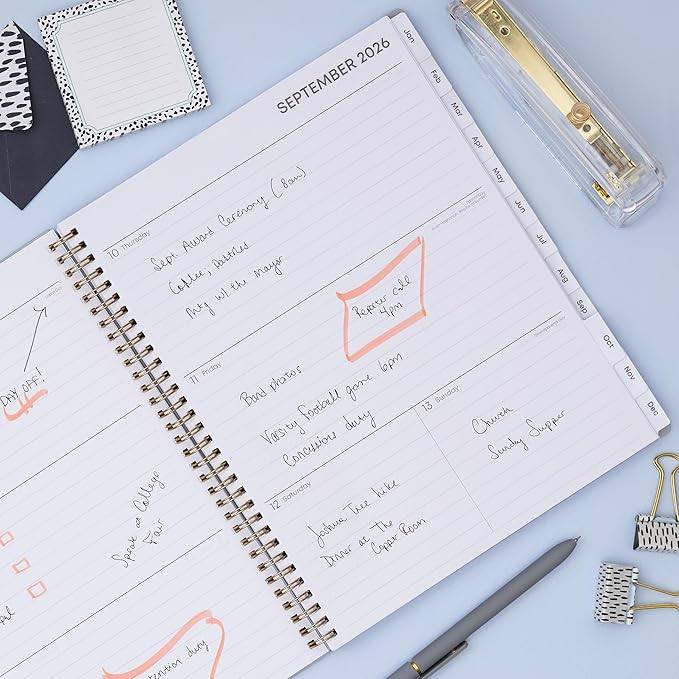 DAY OFF!
Speak at College
Fair
tention duty
SEPTEMBER 2026
10 Thursday
Sept. Award Ceremony (8am)
Mtg w/ the mayor
11 Friday
Reporter call
4pm
Band photos
Varsity Football game 6pm
Concessions duty
12 Saturday
Joshua Tree hike
Dinner at the
Copper Room
13 Sunday
Church
Sunday Supper
Jan
Feb
Mar
Apr
May
Jun
Jul
Aug
Sep
Oct
Nov
Dec